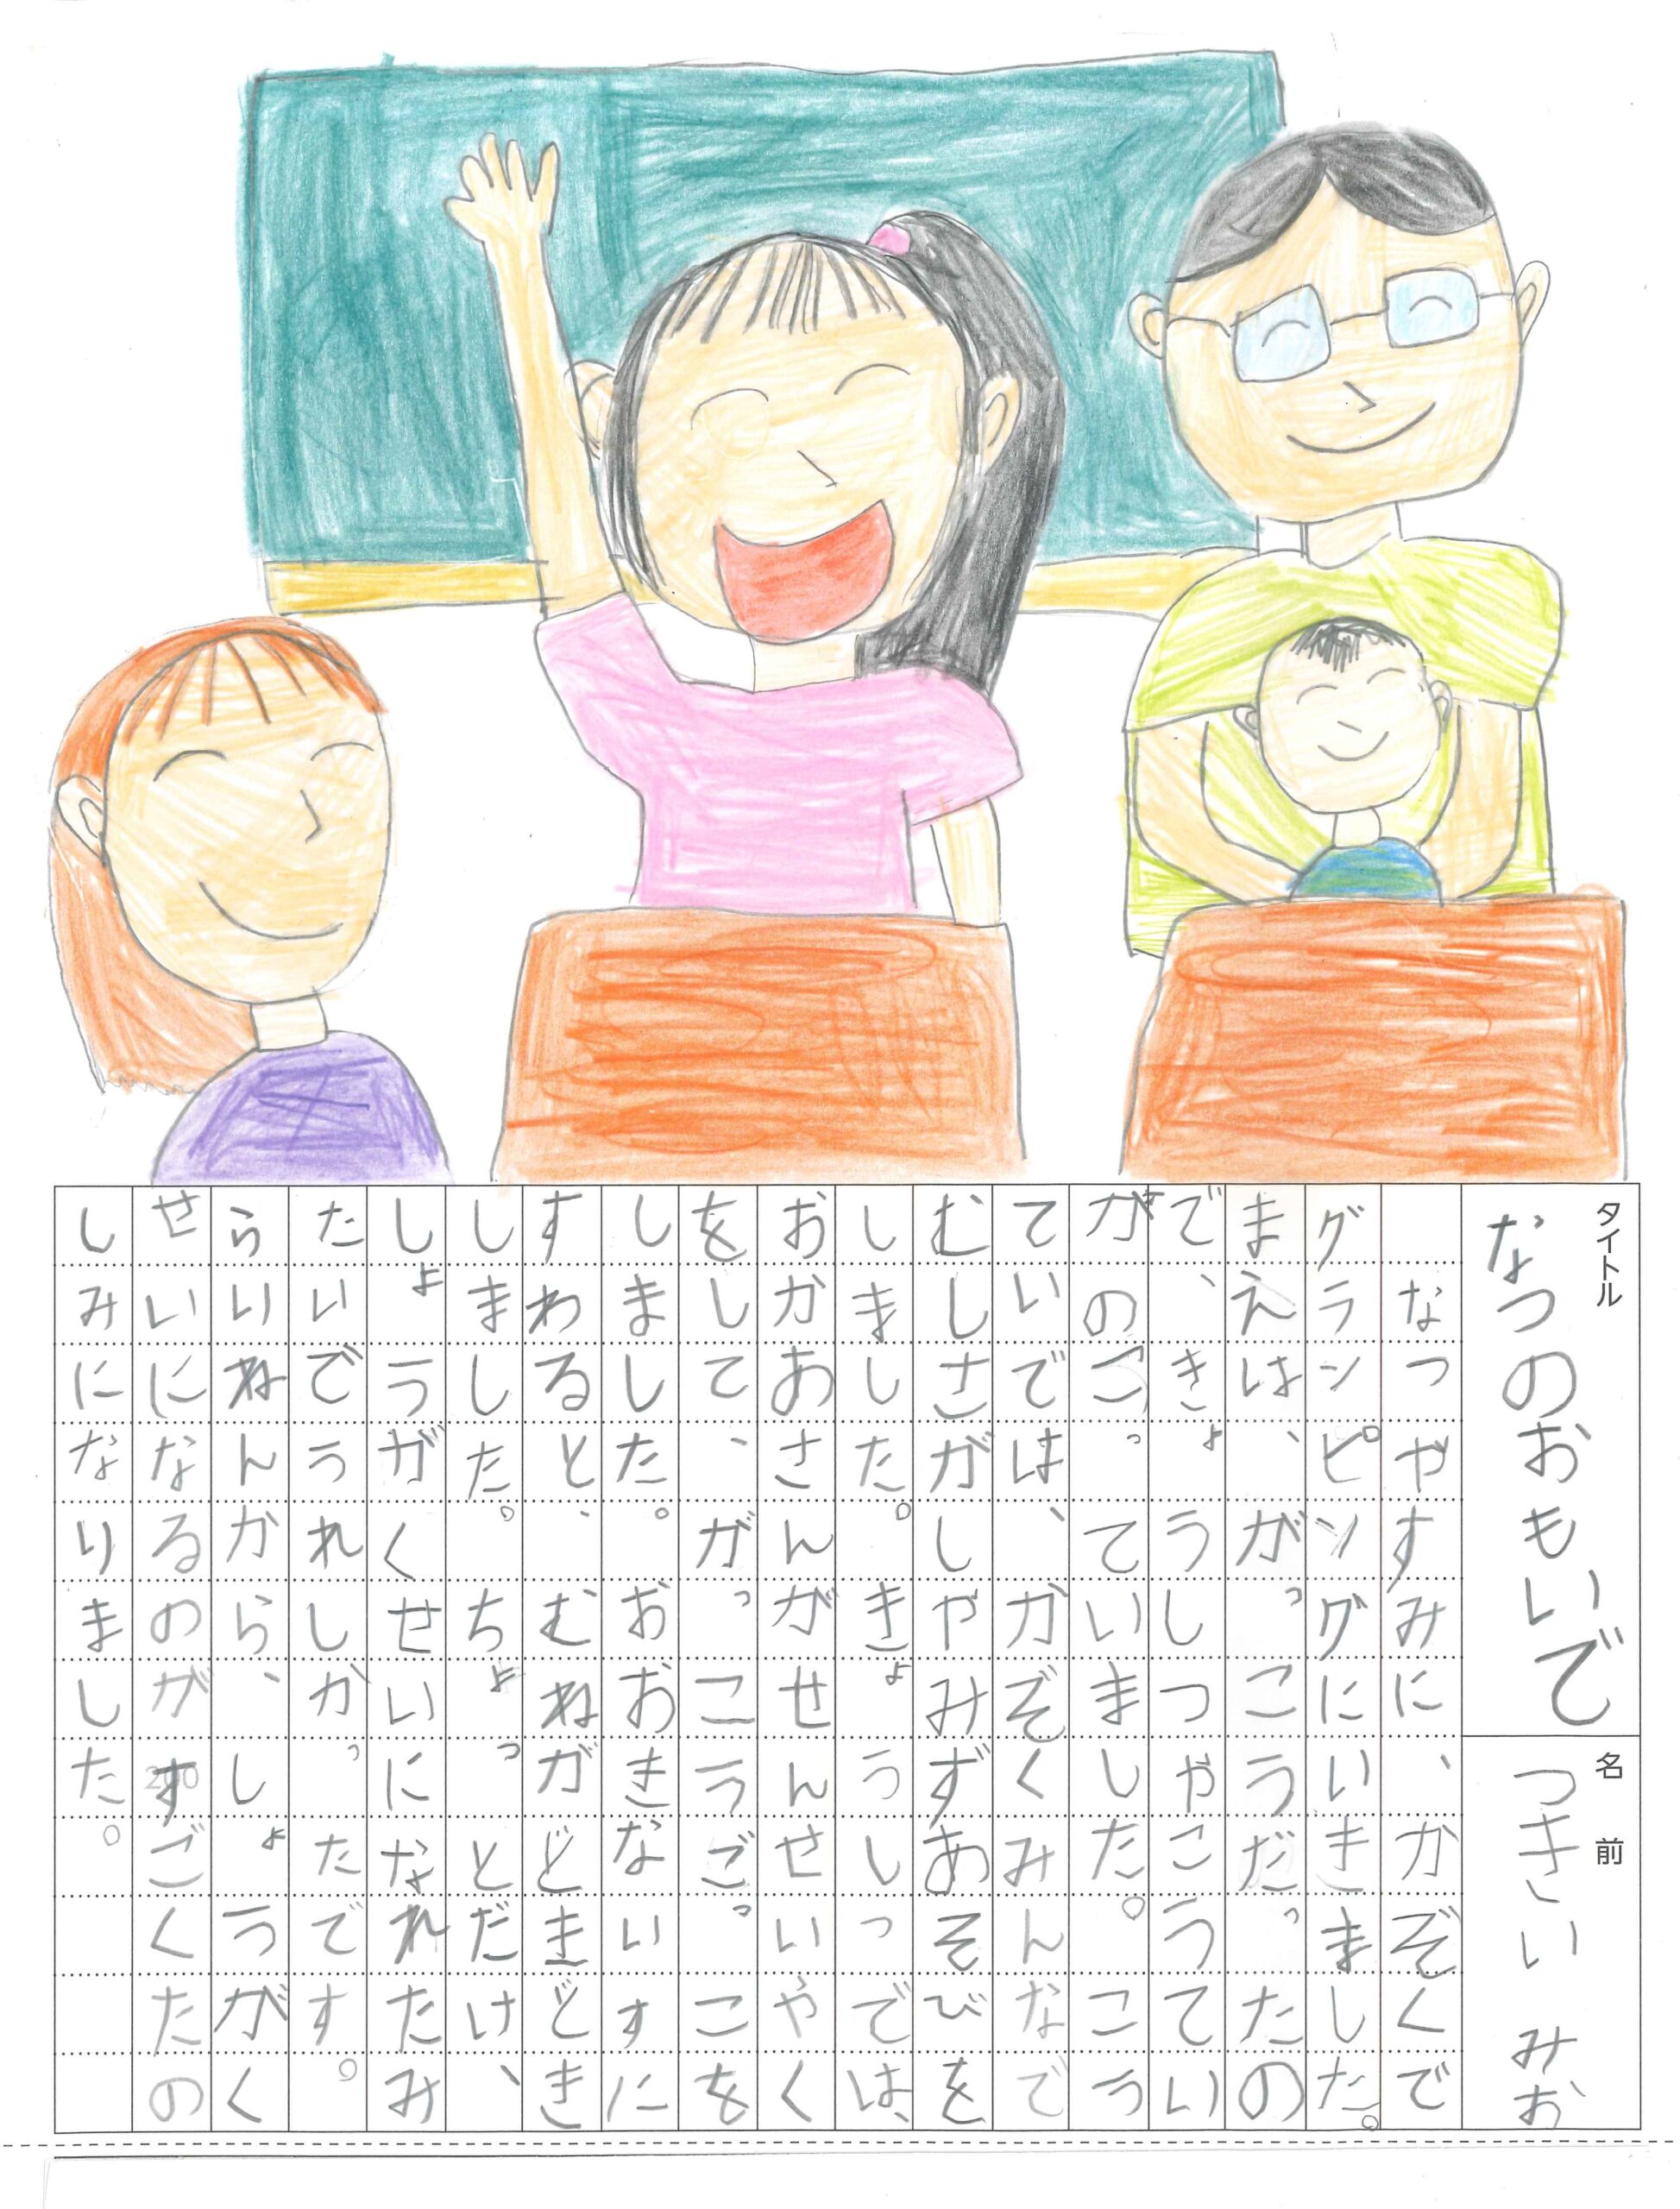 タイトル
なつのおもいで
名前
つきい みお
なつやすみに、かぞくで
グランピングにいきました。
まえは、がっこうだったの
で、きょうしつやこうてい
がのこっていました。こう
ていでは、かぞくみんなで
むしさがしやみずあそびを
しました。きょうしつでは、
おかあさんがせんせいやく
をして、がっこうごっこを
しました。おおきないすに
すわると、むねがどきどき
しました。ちょっとだけ、
しょうがくせいになれたみ
たいでうれしかったです。
らいねんから、しょうがく
せいになるのがすごくたの
200
しみになりました。